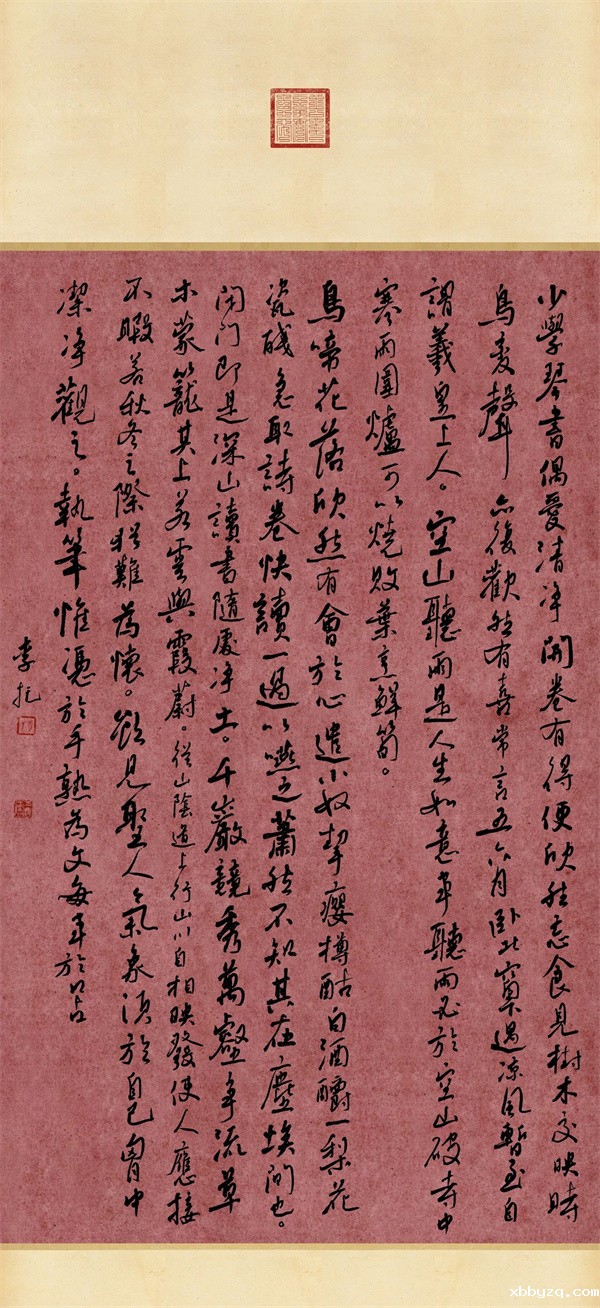 少學琴書偶愛清净開卷有得便欣然忘食見樹木交映時
鳥變聲亦復歡然有喜常言五六月卧北窗下遇涼風暫至自
謂羲皇上人。空山聽雨是人生如意事聽雨必於空山破寺中
寒雨圍爐可以燒敗葉烹鮮筍。
鳥啼花落欣然有會於心遣小奴挈癭樽酤白酒釂一梨花
瓷盞急取詩卷快讀一過以嚥之蕭然不知其在塵埃間也。
閉門即是深山讀書隨處净土。千巖競秀萬壑争流草
木蒙籠其上若雲興霞蔚。從山陰道上行山川自相映發使人應接
不暇若秋冬之際猶難為懷。欲見聖人氣象須於自己胷中
潔净觀之。執筆惟憑於手熟為文每事於口占
李
xbbyzq.com